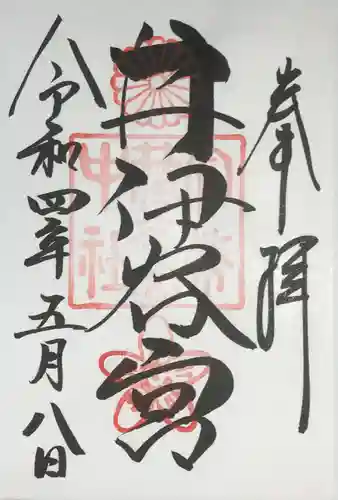 奉拝
井伊谷宮
令和四年五月八日